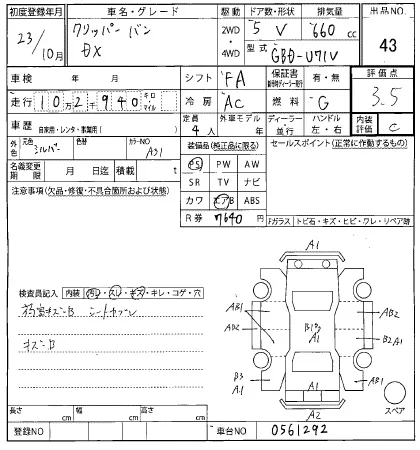 初度登録年月 車名・グレード 駆動 ドア数・形状 排気量 出品NO.
23/10月 クリッパー バン DX 2WD 4WD 5 V 660cc 43
型式 GBD-U71V
車検 年 月 シフト FA 保証書 有・無 評価点
走行 10万2千940 キロ マイル 冷房 AC 燃料 G 3.5
車歴 自家用・レンタ・事業用( ) 定員 4人 外車モデル 年 ディーラー 並行 ハンドル 左・右 内装評価 C
外色 元色 シルバー 色替 カラーNO 装備品(純正品に限る) セールスポイント(正常に作動するもの)
名義変更期限 月 日迄 積載 t PS PW AW
SR TV ナビ
注意事項(欠品・修復・不具合箇所および状態) カワ エアB ABS
R券 7640円 Fガラス トビ石・キズ・ヒビ・ワレ・リペア跡
A1
検査員記入 内装 汚レ・スレ・キズ・キレ・コゲ・穴
AB1 AB2
AD2 A1 B2 A1
キズ B
B3 A1 A1 AB1
スペア
A2
長さ cm 幅 cm 高さ cm
登録NO 車台NO 0561292